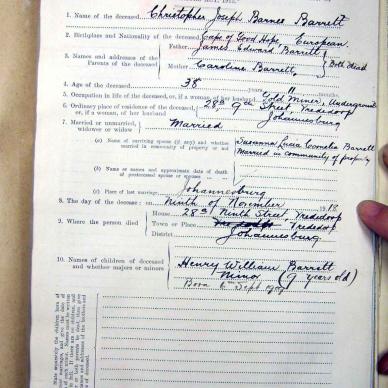 1. Name of the deceased Christopher Joseph Barnes Barrett
2. Birthplace and Nationality of the deceased Cape of Good Hope European
3. Names and addresses of the Parents of the deceased
Father James Edward Barrett
Mother Caroline Barrett
Both dead
4. Age of the deceased 38 years 11
5. Occupation in life of the deceased, or, if a woman, of her husband Gold Miner Underground
6. Ordinary place of residence of the deceased, or, if a woman, of her husband 28a 9th Street Vrededorp
Johannesburg
7. Married or unmarried, widower or widow Married
(a) Name of surviving spouse (if any) and whether married in community of property or not
Susanna Lucia Cornelia Barrett
Married in community of property
(b) Name or names and approximate date of death of predeceased spouse or spouses
(c) Place of last marriage Johannesburg
8. The day of the decease: on Ninth of November 1918
9. Where the person died
House 28a Ninth Street, Vrededorp
Town or Place Vrededorp
District Johannesburg
10. Names of children of deceased and whether majors or minors
Henry William Barrett
Minor (9 years old)
Born Sept